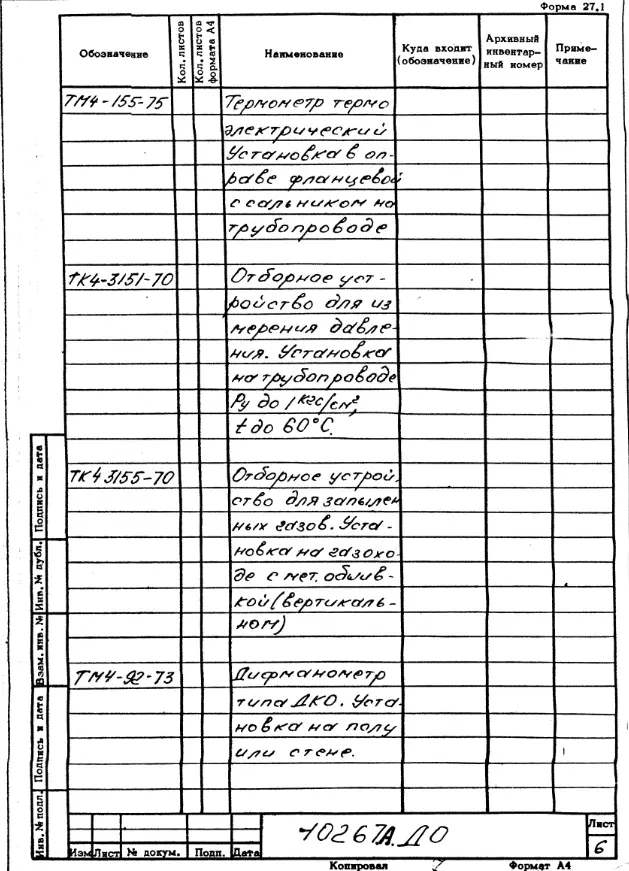 Форма 27.1
Обозначение
Кол. листов
Кол. листов формата А4
Наименование
Куда входит (обозначение)
Архивный инвентарный номер
Примечание
ТМ4-155-75 Термометр термо
электрический
Установка в оп-
раве фланцевой
с сальником на
трубопроводе
ТК4-3151-70 Отборное уст-
ройство для из
мерения давле-
ния. Установка
на трубопроводе
Ру до 1 кгс/см²,
t до 60°С.
ТК4 3155-70 Отборное устрой-
ство для запылен
ных газов. Уста-
новка на газохо-
де с мет. обшив-
кой (вертикаль-
ном)
ТМ4-92-73 Дифманометр
типа ДКО. Уста-
новка на полу
или стене.
Инв.№ подл.
Подпись и дата
Взам. инв. №
Инв.№ дубл.
Подпись и дата
Изм Лист № докум. Подп. Дата
10267А.ДО
Лист
6
Копировал
Формат А4